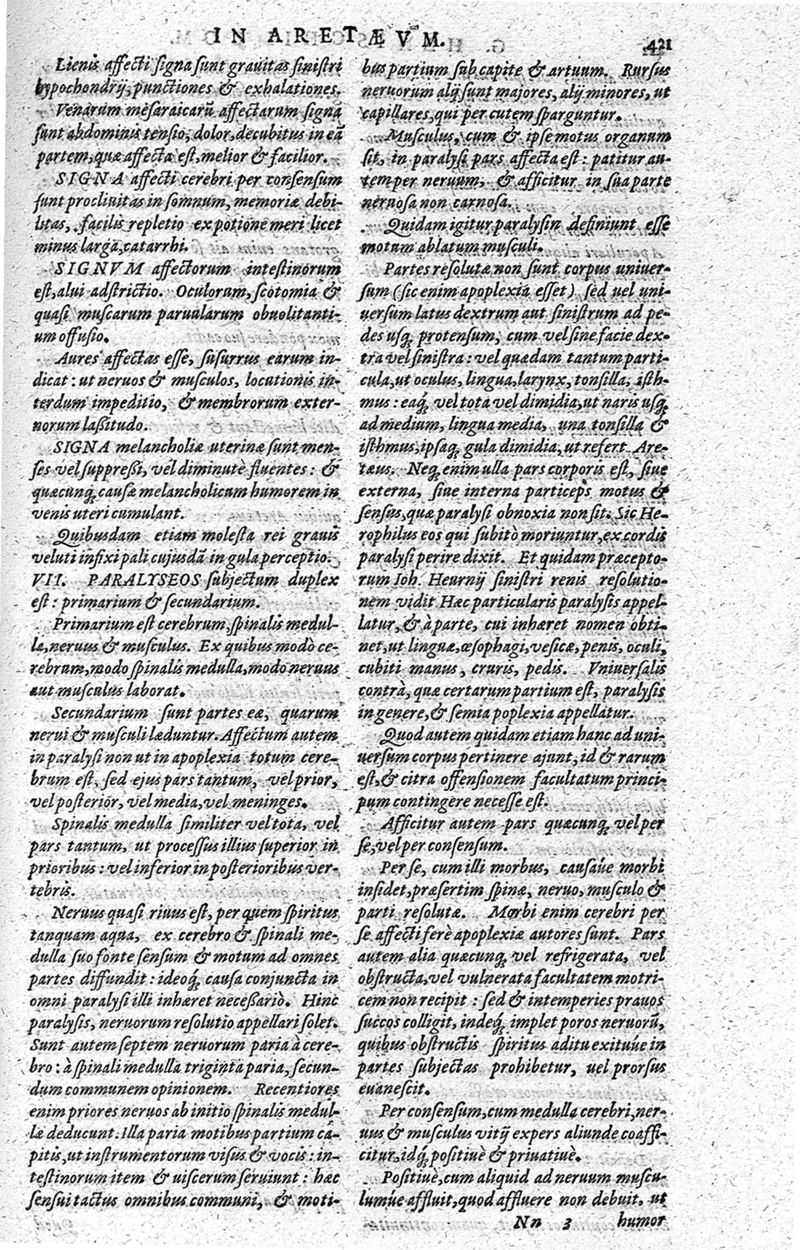 IN ARETÆVM.
421
Lienis affecti signa sunt grauitas sinistri
hypochondrij, punctiones & exhalationes.
Venarum mesaraicarũ affectarum signa
sunt abdominis tensio, dolor, decubitus in eã
partem, quæ affecta est, melior & facilior.
SIGNA affecti cerebri per consensum
sunt proclinitas in somnum, memoriæ debi-
litas, facilis repletio ex potione meri licet
minus largã, catarrhi.
SIGNVM affectorum intestinorum
est, alui adstrictio. Oculorum, scotomia &
quasi muscarum paruularum obuolitanti-
um offusio.
Aures affectas esse, susurrus earum in-
dicat: ut neruos & musculos, locutionis in-
terdum impeditio, & membrorum exter-
norum lassitudo.
SIGNA melancholiæ uterinæ sunt men-
ses vel suppressi, vel diminutè fluentes: &
quæcunq́ causæ melancholicum humorem in
venis uteri cumulant.
Quibusdam etiam molesta rei grauis
veluti infixi pali cujusdã in gula perceptio.
VII. PARALYSEOS subjectum duplex
est: primarium & secundarium.
Primarium est cerebrum, spinalis medul-
la, neruus & musculus. Ex quibus modò ce-
rebrum, modo spinalis medulla, modo neruus
aut musculus laborat.
Secundarium sunt partes eæ, quarum
nerui & musculi læduntur. Affectum autem
in paralysi non ut in apoplexia totum cere-
brum est, sed ejus pars tantum, vel prior,
vel posterior, vel media, vel meninges.
Spinalis medulla similiter vel tota, vel
pars tantum, ut processus illius superior in
prioribus: vel inferior in posterioribus ver-
tebris.
Neruus quasi riuus est, per quem spiritus
tanquam aqua, ex cerebro & spinali me-
dulla suo fonte sensum & motum ad omnes
partes diffundit: ideoq́ causa conjuncta in
omni paralysi illi inhæret necessariò. Hinc
paralysis, neruorum resolutio appellari solet.
Sunt autem septem neruorum paria à cere-
bro: à spinali medulla triginta paria, secun-
dum communem opinionem. Recentiores
enim priores neruos ab initio spinalis medul-
læ deducunt: Illa paria motibus partium ca-
pitis, ut instrumentorum visus & vocis: in-
testinorum item & uiscerum seruiunt: hæc
sensui tactus omnibus communi, & moti-
bus partium sub capite & artuum. Rursus
neruorum alij sunt majores, alij minores, ut
capillares, qui per cutem sparguntur.
Musculus, cum & ipse motus organum
sit, in paralysi pars affecta est: patitur au-
tem per neruum, & afficitur in sua parte
neruosa non carnosa.
Quidam igitur paralysin definiunt esse
motum ablatum musculi.
Partes resolutæ non sunt corpus univer-
sum (sic enim apoplexia esset) sed uel uni-
uersum latus dextrum aut sinistrum ad pe-
des usq́ protensum, cum vel sine facie dex-
tra vel sinistra: vel quædam tantum parti-
cula, ut oculus, lingua, larynx, tonsilla, isth-
mus: eaq́ vel tota vel dimidia, ut naris usq́
ad medium, lingua media, una tonsilla &
isthmus, ipsaq́ gula dimidia, ut refert Are-
tæus. Neq́ enim ulla pars corporis est, siue
externa, siue interna particeps motus &
sensus, quæ paralysi obnoxia non sit. Sic He-
rophilus eos qui subitò moriuntur, ex cordis
paralysi perire dixit. Et quidam præcepto-
rum Ioh. Heurnij sinistri renis resolutio-
nem vidit Hæc particularis paralysis appel-
latur, & à parte, cui inhæret nomen obti-
net, ut linguæ, œsophagi, vesicæ, penis, oculi,
cubiti manus, cruris, pedis. Vniuersalis
contrà, quæ certarum partium est, paralysis
in genere, & semiapoplexia appellatur.
Quod autem quidam etiam hanc ad uni-
uersum corpus pertinere ajunt, id & rarum
est, & citra offensionem facultatum princi-
pum contingere necesse est.
Afficitur autem pars quæcunq́ vel per
se, vel per consensum.
Per se, cum illi morbus, causaúe morbi
insidet, præsertim spinæ, neruo, musculo &
parti resolutæ. Morbi enim cerebri per
se affecti ferè apoplexiæ autores sunt. Pars
autem alia quæcunq́ vel refrigerata, vel
obstructa, vel vulnerata facultatem motri-
cem non recipit: sed & intemperies prauos
succos colligit, indeq́ implet poros neruorũ,
quibus obstructis spiritus aditu exitúue in
partes subjectas prohibetur, uel prorsus
euanescit.
Per consensum, cum medulla cerebri, ner-
uus & musculus vitij expers aliunde coaffi-
citur, idq́ positiuè & priuatiuè.
Positiuè, cum aliquid ad neruum muscu-
lumúe affluit, quod affluere non debuit, ut
Nn 3 humor